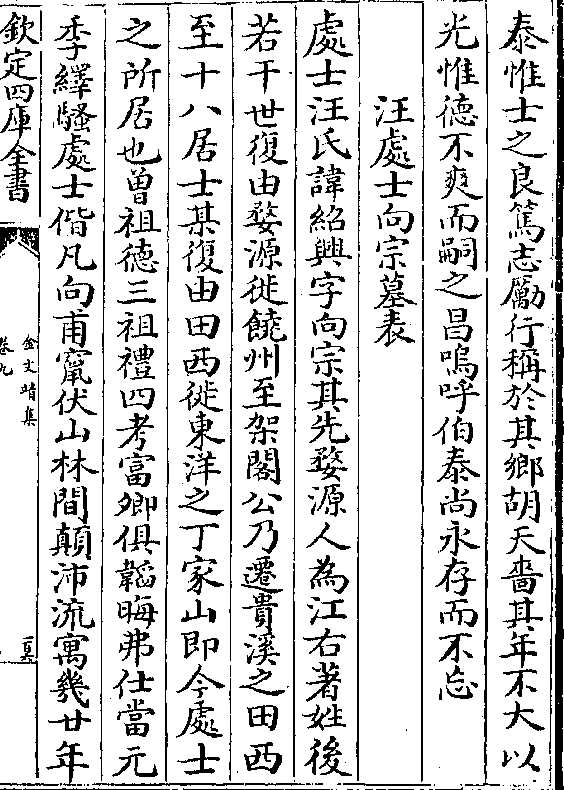 泰惟士之良篤志勵行稱於其鄉胡天嗇其年不大以
光惟德不爽而嗣之昌嗚呼伯泰尚永存而不忘
汪處士向宗墓表
處士汪氏諱紹興字向宗其先婺源人為江右著姓後
若干世復由婺源徙饒州至架閣公乃遷貴溪之田西
至十八居士某復由田西徙東洋之丁家山即今處士
之所居也曾祖德三祖禮四考富卿俱韜晦弗仕當元
季繹騷處士偕凡向甫竄伏山林間顛沛流寓幾廿年
欽定四庫全書
金文靖集
卷九